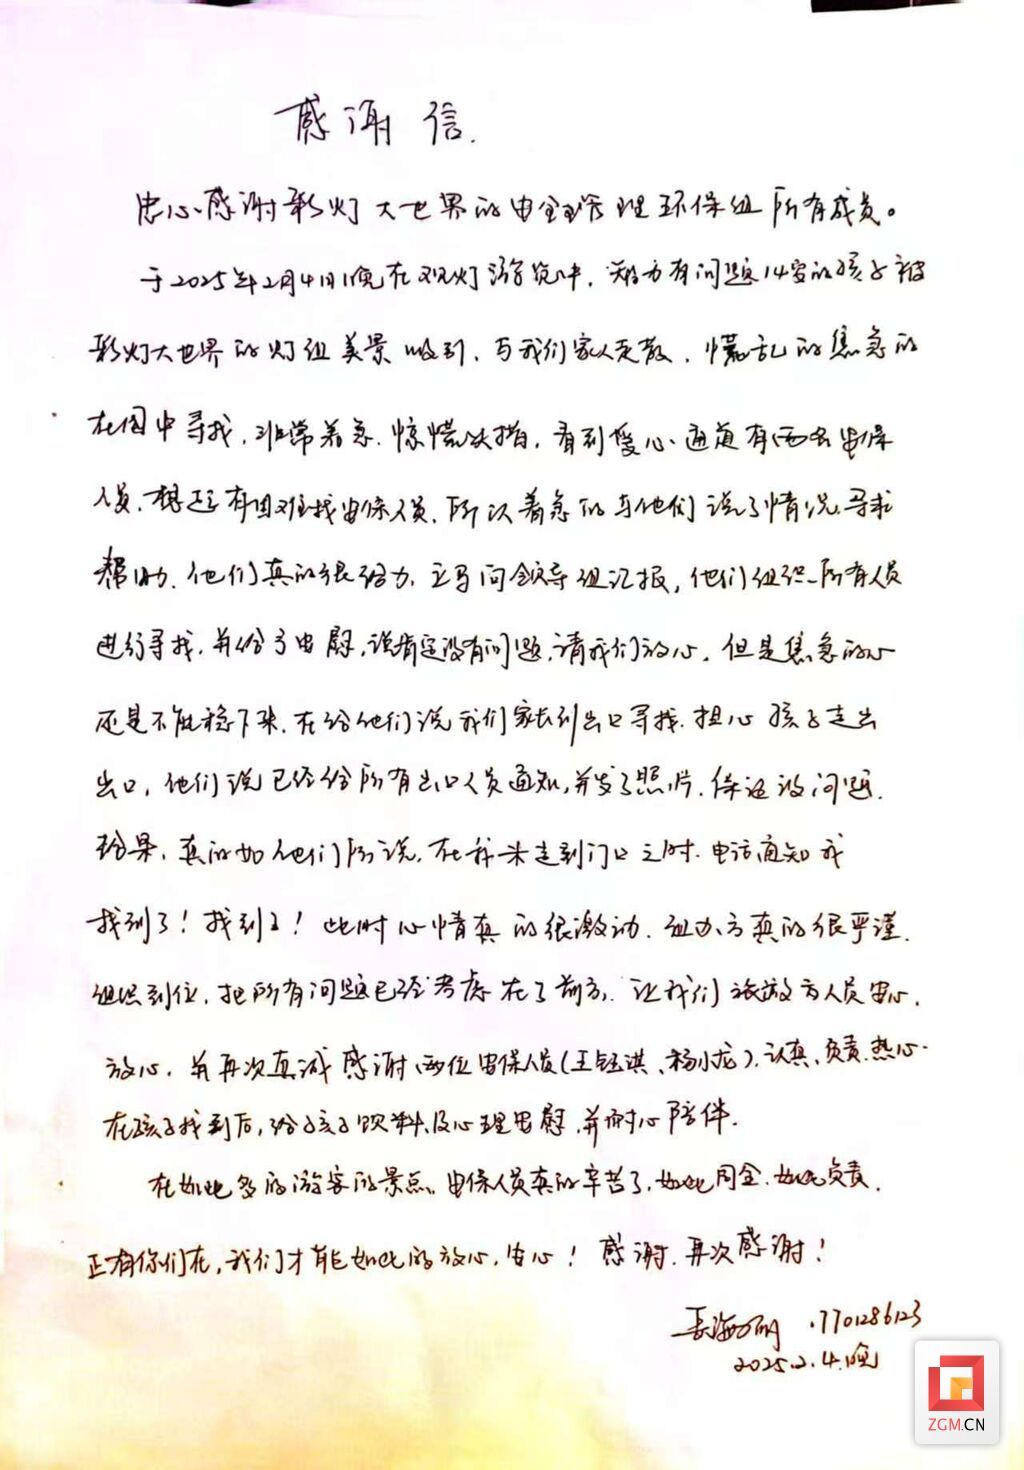 感谢信.
忠心感谢彩灯大世界的安全管理环保组所有成员。
于2025年2月4日晚在观灯游览中,智力有问题14岁的孩子被
彩灯大世界的灯组美景吸引,与我们家人走散,慌乱的焦急的
在园中寻找,非常着急,惊慌失措,看到爱心通道有两名安保
人员,想起有困难找安保人员,所以着急的与他们说了情况,寻求
帮助,他们真的很给力,立马向领导组汇报,他们组织所有人员
进行寻找,并给予安慰,说肯定没有问题,请我们放心,但是焦急的心
还是不能稳下来,在给他们说我们家长到出口寻找,担心孩子走出
出口,他们说已经给所有出口人员通知,并发了照片,保证没问题.
结果,真的如他们所说,在我未走到门口之时,电话通知我
找到了!找到了!此时心情真的很激动,组办方真的很严谨.
组织到位,把所有问题已经考虑在了前方,让我们旅游方人员安心,
放心,并再次真诚感谢两位安保人员(王钰淇、杨小龙),认真、负责、热心.
在孩子找到后,给孩子饮料及心理安慰,并耐心陪伴.
在如此多的游客的景点,安保人员真的辛苦了,如此周全,如此负责,
正有你们在,我们才能如此的放心,安心!感谢,再次感谢!
17701286123
2025.2.4.晚
ZGM.CN